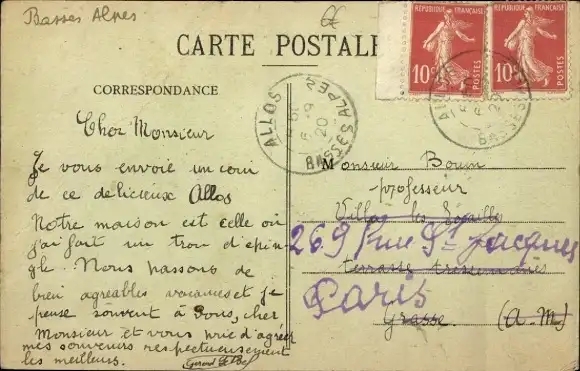 Basses Alpes
CARTE POSTALE
RÉPUBLIQUE FRANÇAISE
10c POSTES
RÉPUBLIQUE FRANÇAISE
10c POSTES
ALLOS
20
BASSES ALPES
ALLOS
20
BASSES
CORRESPONDANCE
Cher Monsieur
Je vous envoie un coin
de ce délicieux Allos
Notre maison est celle où
j'ai fait un trou d'épin
gle. Nous passons de
bien agréables vacances et je
pense souvent à vous, cher
Monsieur et vous prie d'agréer
mes souvenirs respectueusement
les meilleurs.
Gérard
Monsieur Bouin
professeur
Villa les
269 Rue St Jacques
terrasse
Paris
Grasse (a. M)